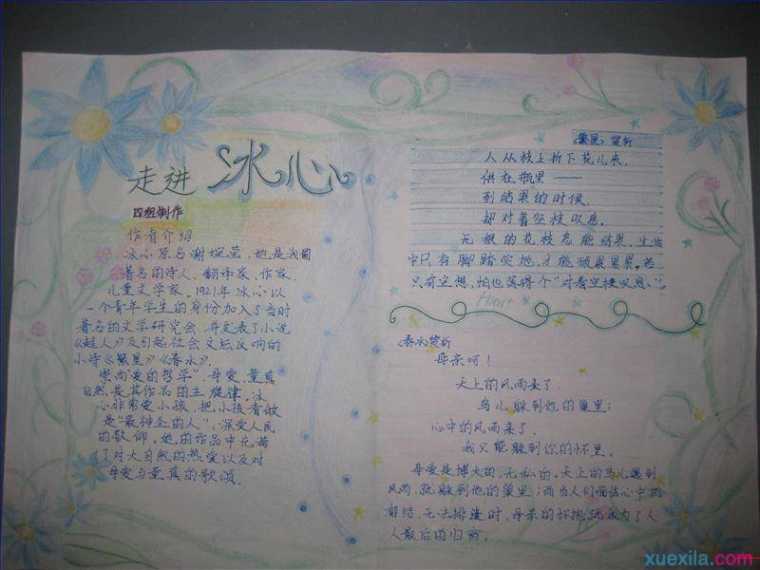 走进 冰心
四组制作
作者介绍
冰心原名谢婉莹，她是我国
著名的诗人、翻译家、作家、
儿童文学家。1921年冰心以
一个青年学生的身份加入了当时
著名的文学研究会，并发表了小说
《超人》及引起社会文坛反响的
小诗《繁星》《春水》。
崇尚"爱的哲学"，母爱、童真、
自然是其作品的主旋律。冰
心非常爱小孩，把小孩看做
是"最神圣的人"，深受人民
的敬仰。她的作品中充满
了对大自然的热爱以及对
母爱与童真的歌颂。
《繁星》赏析
人从枝上折下花儿来，
供在瓶里——
到结果的时候，
却对着空枝叹息。
无根的花枝怎能结果，生活
中只有脚踏实地，才能硕果累累。若
只有空想，怕也落得个"对着空枝叹息"。
Heart
《春水》赏析
母亲呵！
天上的风雨来了，
鸟儿躲到他的巢里；
心中的风雨来了，
我只能躲到你的怀里。
母爱是博大的、无私的。天上的鸟儿遇到
风雨，就躲到他的巢里；而当人们面临心中的
郁结，无法排遣时，母亲的怀抱就成为了人
人最后的归所。
xuexila.com